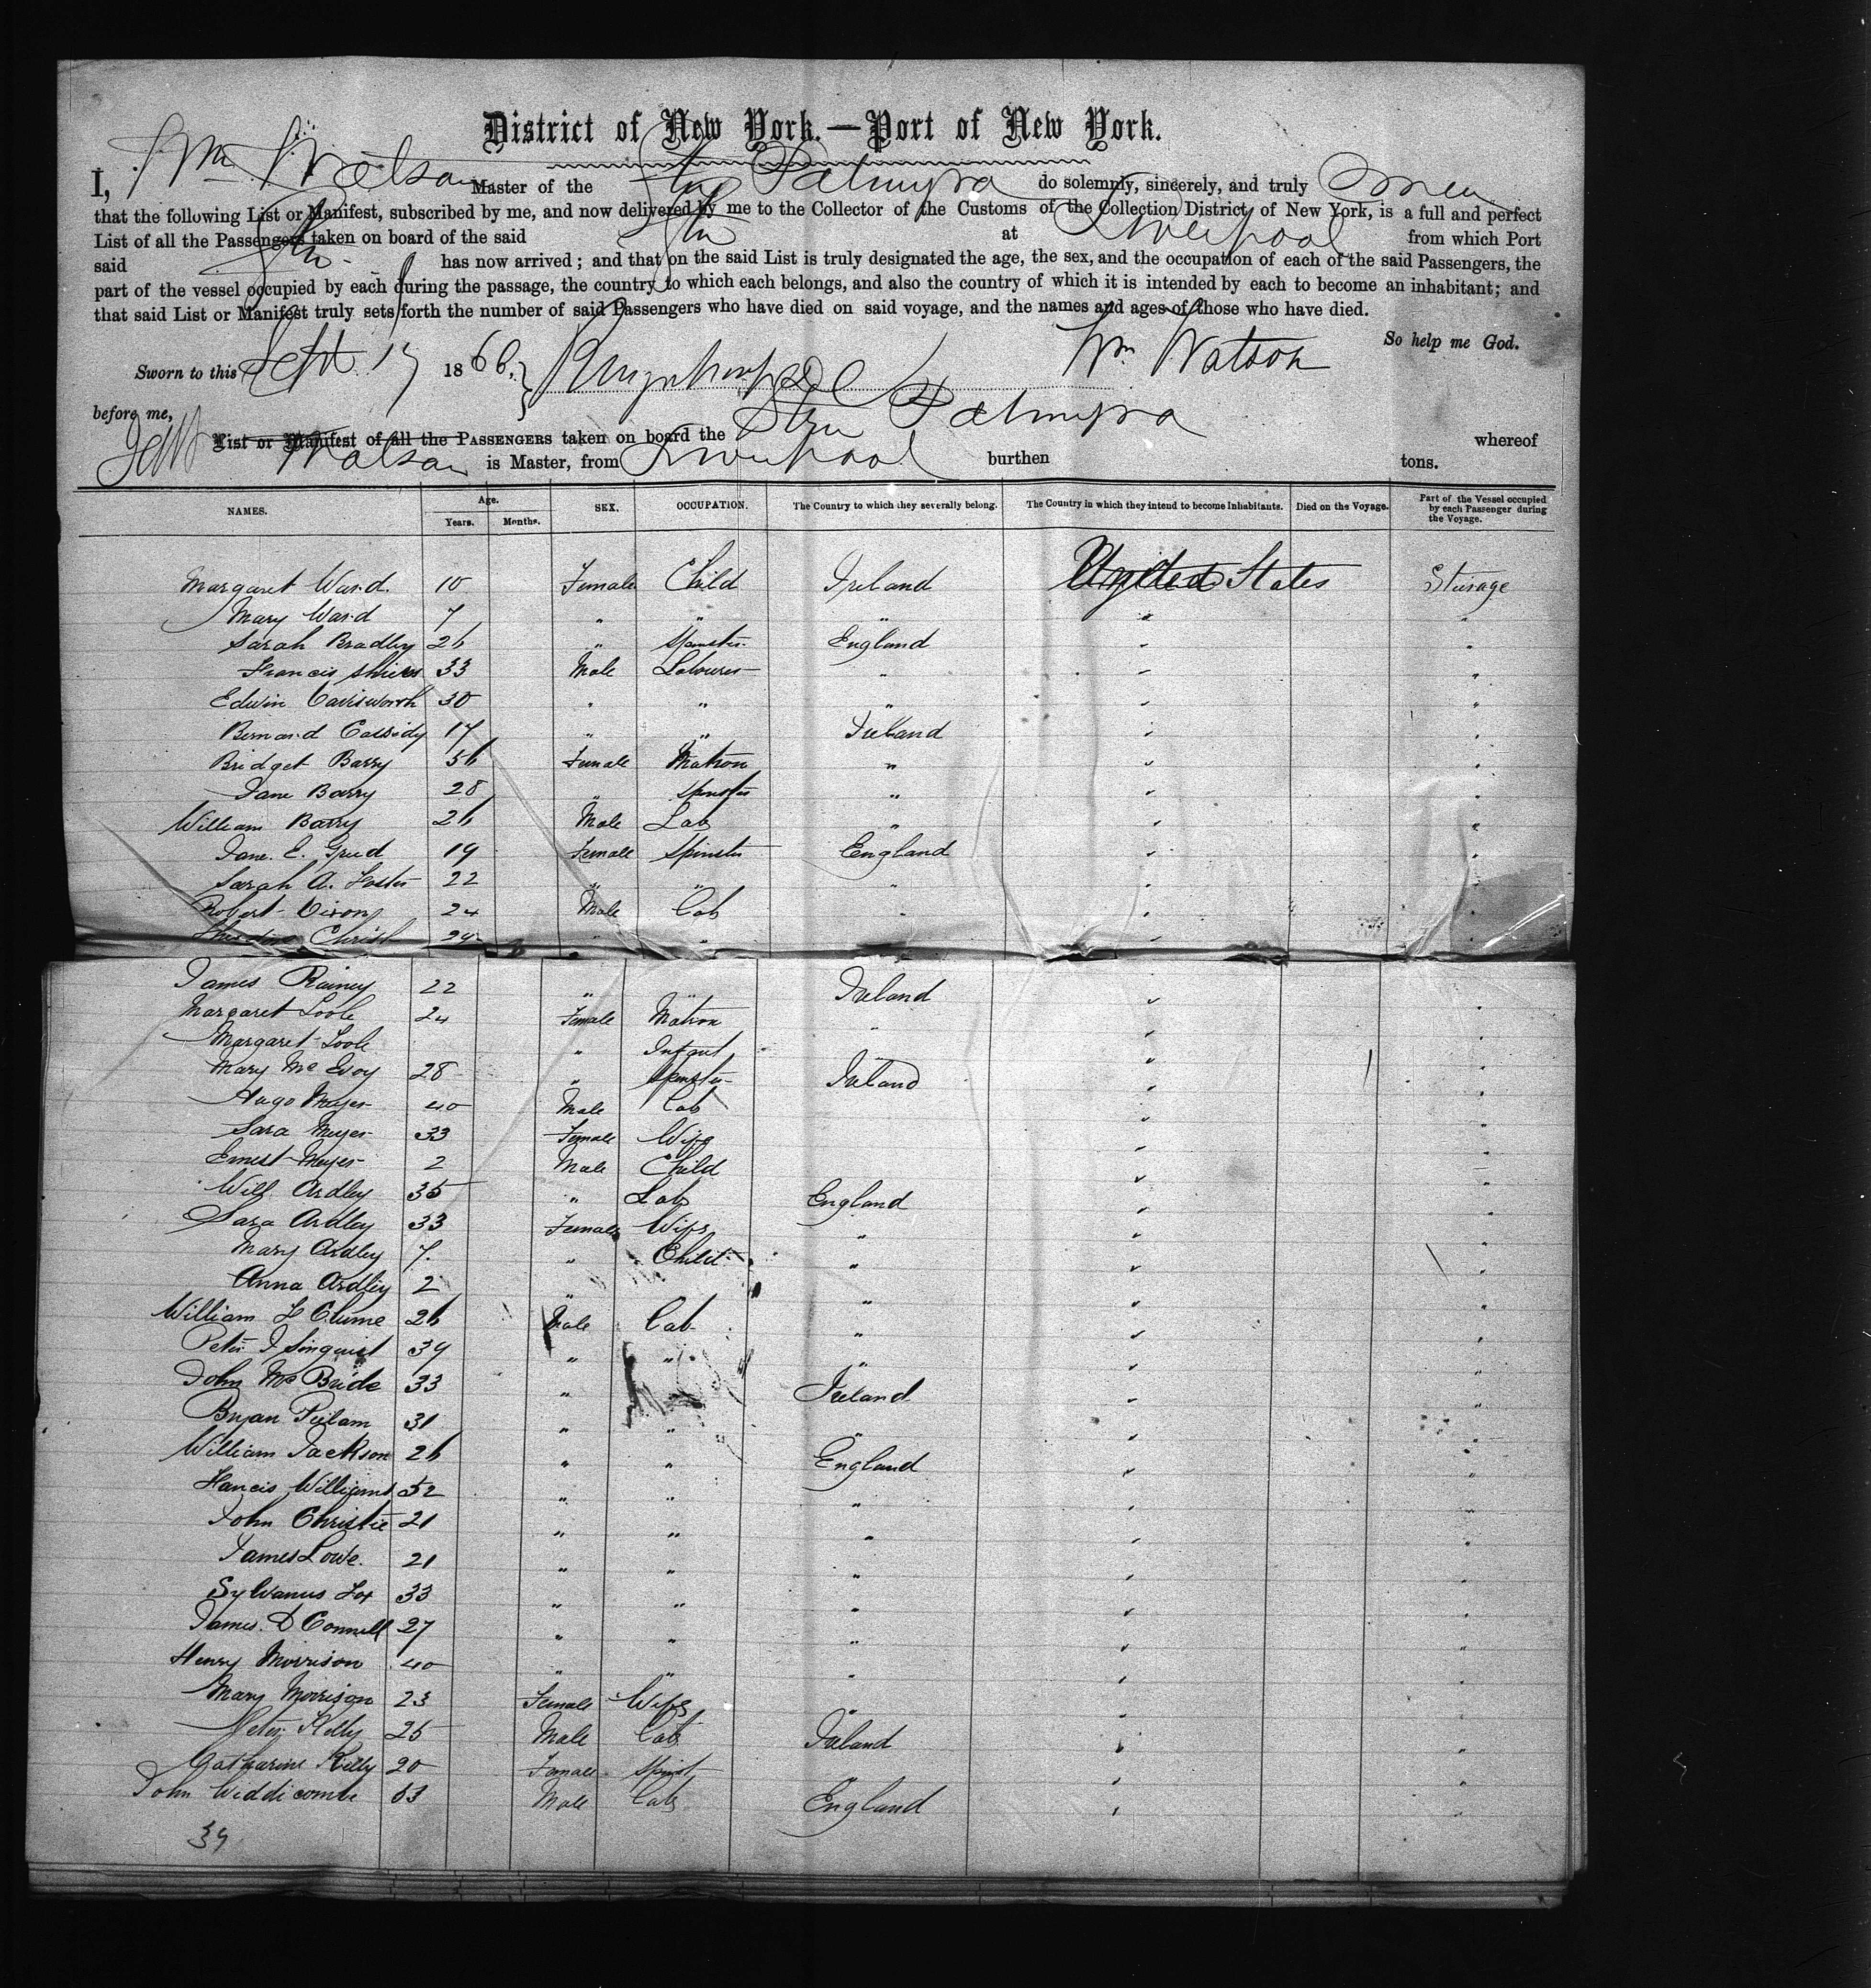 District of New York.—Port of New York.
I, Wm Watson Master of the Str Palmyra do solemnly, sincerely, and truly swear
that the following List or Manifest, subscribed by me, and now delivered by me to the Collector of the Customs of the Collection District of New York, is a full and perfect
List of all the Passengers taken on board of the said Str at Liverpool from which Port
said Str has now arrived; and that on the said List is truly designated the age, the sex, and the occupation of each of the said Passengers, the
part of the vessel occupied by each during the passage, the country to which each belongs, and also the country of which it is intended by each to become an inhabitant; and
that said List or Manifest truly sets forth the number of said Passengers who have died on said voyage, and the names and ages of those who have died.
So help me God.
Sworn to this Sept. 17 1866. Wm Watson
before me,
List or Manifest of all the PASSENGERS taken on board the Str Palmyra whereof
Watson is Master, from Liverpool burthen tons.
NAMES. Age. Years. Months. SEX. OCCUPATION. The Country to which they severally belong. The Country in which they intend to become Inhabitants. Died on the Voyage. Part of the Vessel occupied by each Passenger during the Voyage.
Margaret Ward. 10 Female Child Ireland United States Steerage
Mary Ward 7 " " " " "
Sarah Bradley 26 " Spinster England " "
Francis 33 Male Labourer " " "
Edwin 30 " " " " "
Bernard Cassidy 17 " " Ireland " "
Bridget Barry 56 Female Matron " " "
Jane Barry 28 " Spinster " " "
William Barry 26 Male Lab " " "
Jane. E. 19 Female Spinster England " "
Sarah A. Foster 22 " " " " "
Robert 24 Male Lab " " "
Christ 24 " " " "
James Rainey 22 " " Ireland " "
Margaret Toole 24 Female Matron " " "
Margaret Toole " Infant " "
Mary McEvoy 28 " Spinster Ireland " "
Hugo Meyer 40 Male Lab " "
Sara Meyer 33 Female Wife " "
Ernest Meyer 2 Male Child " "
Will Ardley 35 " Lab England " "
Sara Ardley 33 Female Wife " " "
Mary Ardley 7. " Child " " "
Anna Ardley 2 " " " "
William H Clume 26 Male Lab " " "
Peter J Sinquist 39 " " " " "
John McBride 33 " " Ireland " "
Bryan 31 " " " " "
William Jackson 26 " " England " "
Francis Williams 52 " " " " "
John Christie 21 " " " " "
James Lowe. 21 " " " " "
Sylvanus Fox 33 " " " " "
James. O Connell 27 " " " " "
Henry Morrison 40 " " " " "
Mary Morrison 23 Female Wife " " "
Peter Kelly 25 Male Lab Ireland " "
Catharine Kelly 20 Female Spinst " " "
John Widdicombe 53 Male Lab England " "
39